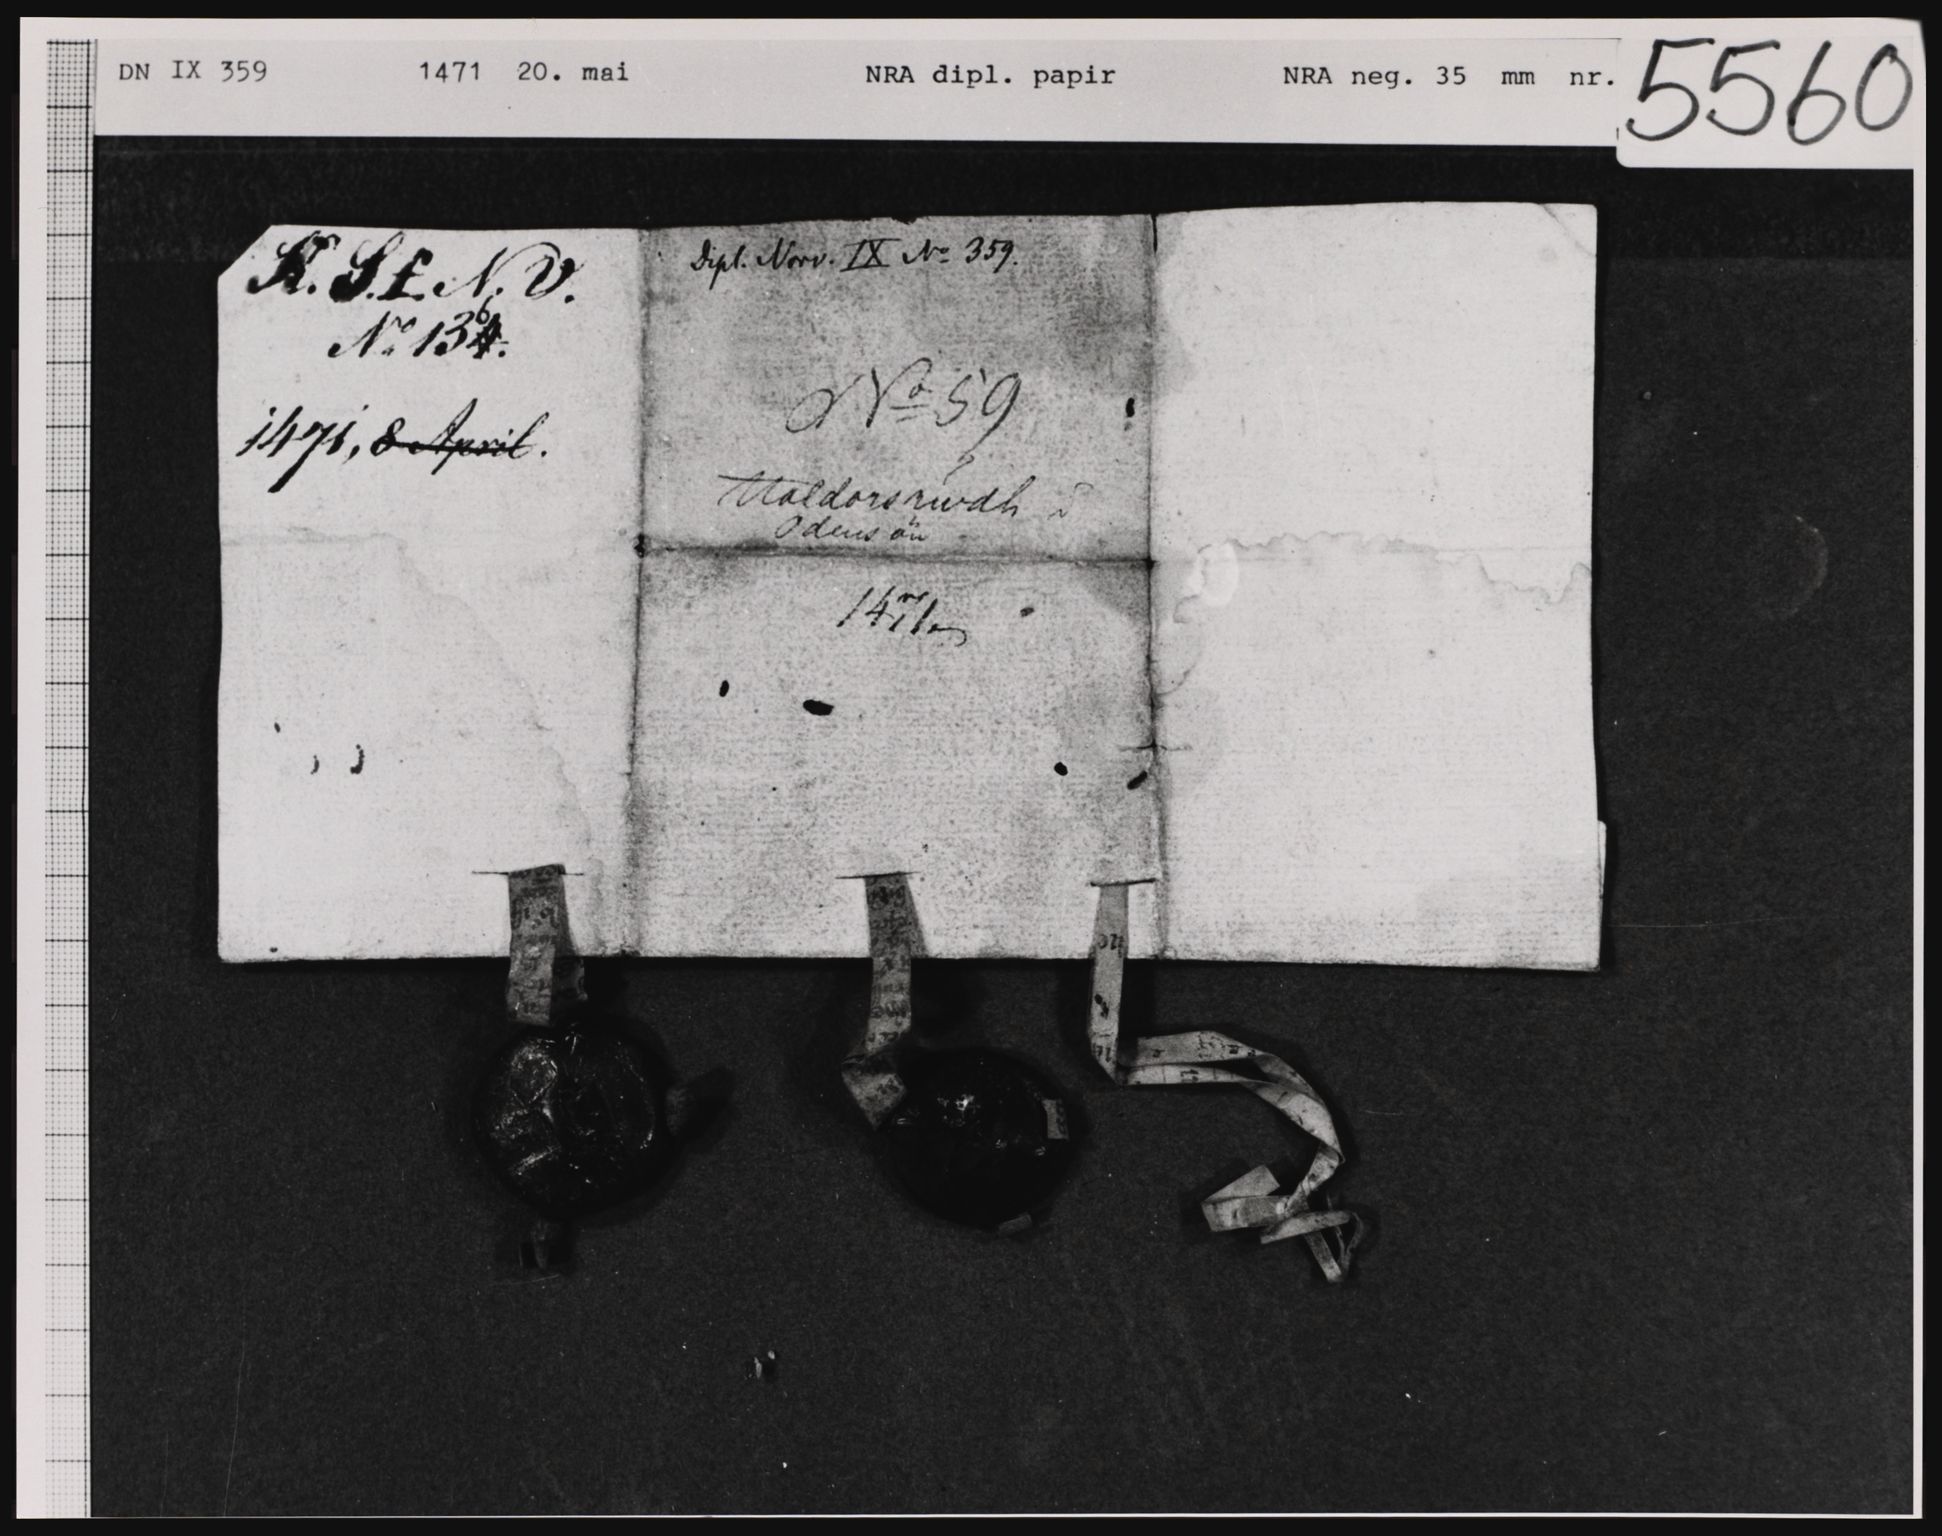 DN IX 359 1471 20. mai NRA dipl. papir NRA neg. 35 mm nr. 5560
K. S. f. N. V.
No 136.
1471, 8 April.
Dipl. Norv. IX No 359.
No 59
Haldorsrwdh i
Odensön
1471